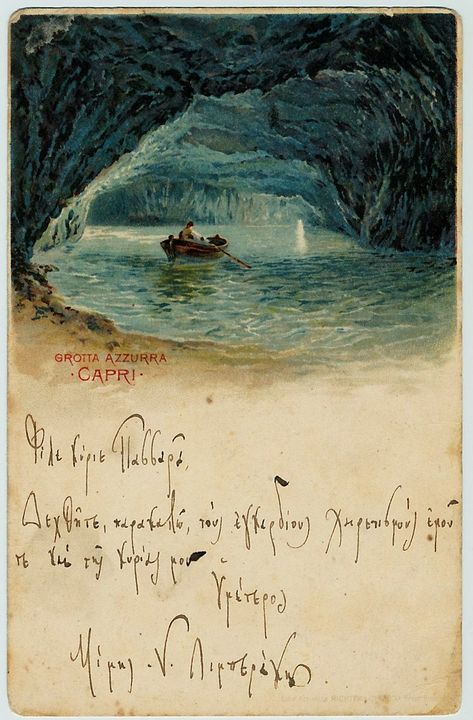 GROTTA AZZURRA
· CAPRI ·
Φίλε Κύριε
Δεχθῆτε, παρακαλῶ, τοὺς ἐγκαρδίους χαιρετισμοὺς ἐμοῦ
τε καὶ τῆς Κυρίας μου
Ὑμέτερος
Μίμης Ν.